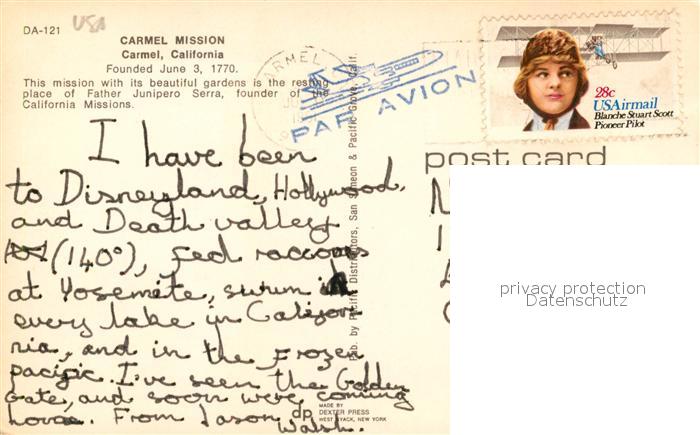 DA-121
USA
CARMEL MISSION
Carmel, California
Founded June 3, 1770.
This mission with its beautiful gardens is the resting
place of Father Junipero Serra, founder of the
California Missions.
CARMEL
PAR AVION
28c
USAirmail
Blanche Stuart Scott
Pioneer Pilot
post card
I have been
to Disneyland, Hollywood,
and Death valley
(140°), fed racoons
at Yosemite, swum in
every lake in Califor
nia, and in the frozen
pacific. I've seen the Golden
Gate, and soon we're coming
home. From Jason
Walsh.
Pub. by Pacific Distributors, San Simeon & Pacific Grove, Calif.
dp
MADE BY
DEXTER PRESS
WEST NYACK, NEW YORK
privacy protection
Datenschutz